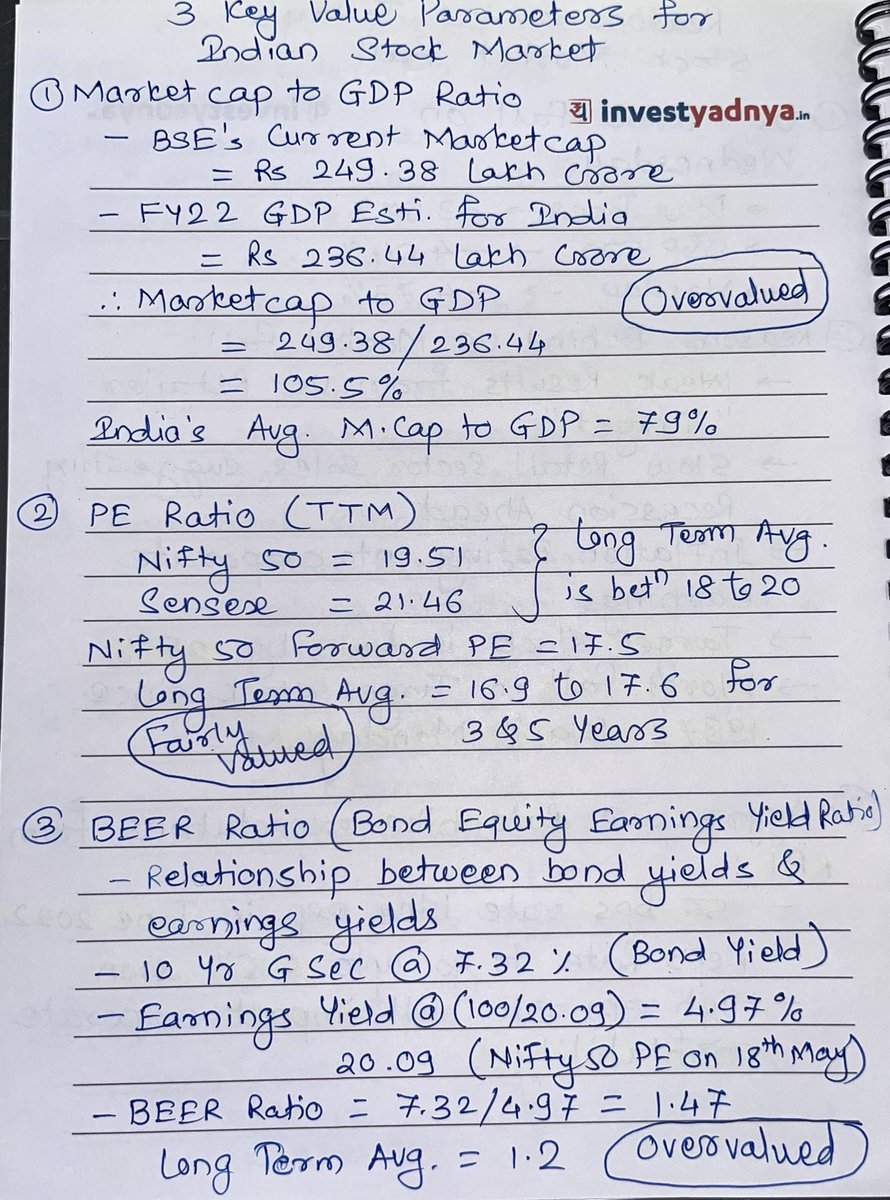 3 Key Value Parameters for
Indian Stock Market
① Market cap to GDP Ratio
य investyadnya.in
- BSE's Current Marketcap
= Rs 249.38 Lakh Crore
- FY22 GDP Esti. for India
= Rs 236.44 Lakh Crore
∴ Marketcap to GDP
Overvalued
= 249.38/236.44
= 105.5%
India's Avg. M.Cap to GDP = 79%
② PE Ratio (TTM)
Nifty 50 = 19.51
Sensex = 21.46
} Long Term Avg.
is betⁿ 18 to 20
Nifty 50 Forward PE = 17.5
Long Term Avg. = 16.9 to 17.6 for
3 & 5 Years
Fairly
Valued
③ BEER Ratio (Bond Equity Earnings Yield Ratio)
- Relationship between bond yields &
earnings yields
- 10 Yr G Sec @ 7.32 % (Bond Yield)
- Earnings Yield @ (100/20.09) = 4.97%
20.09 (Nifty 50 PE on 18th May)
- BEER Ratio = 7.32/4.97 = 1.47
Long Term Avg. = 1.2 Overvalued